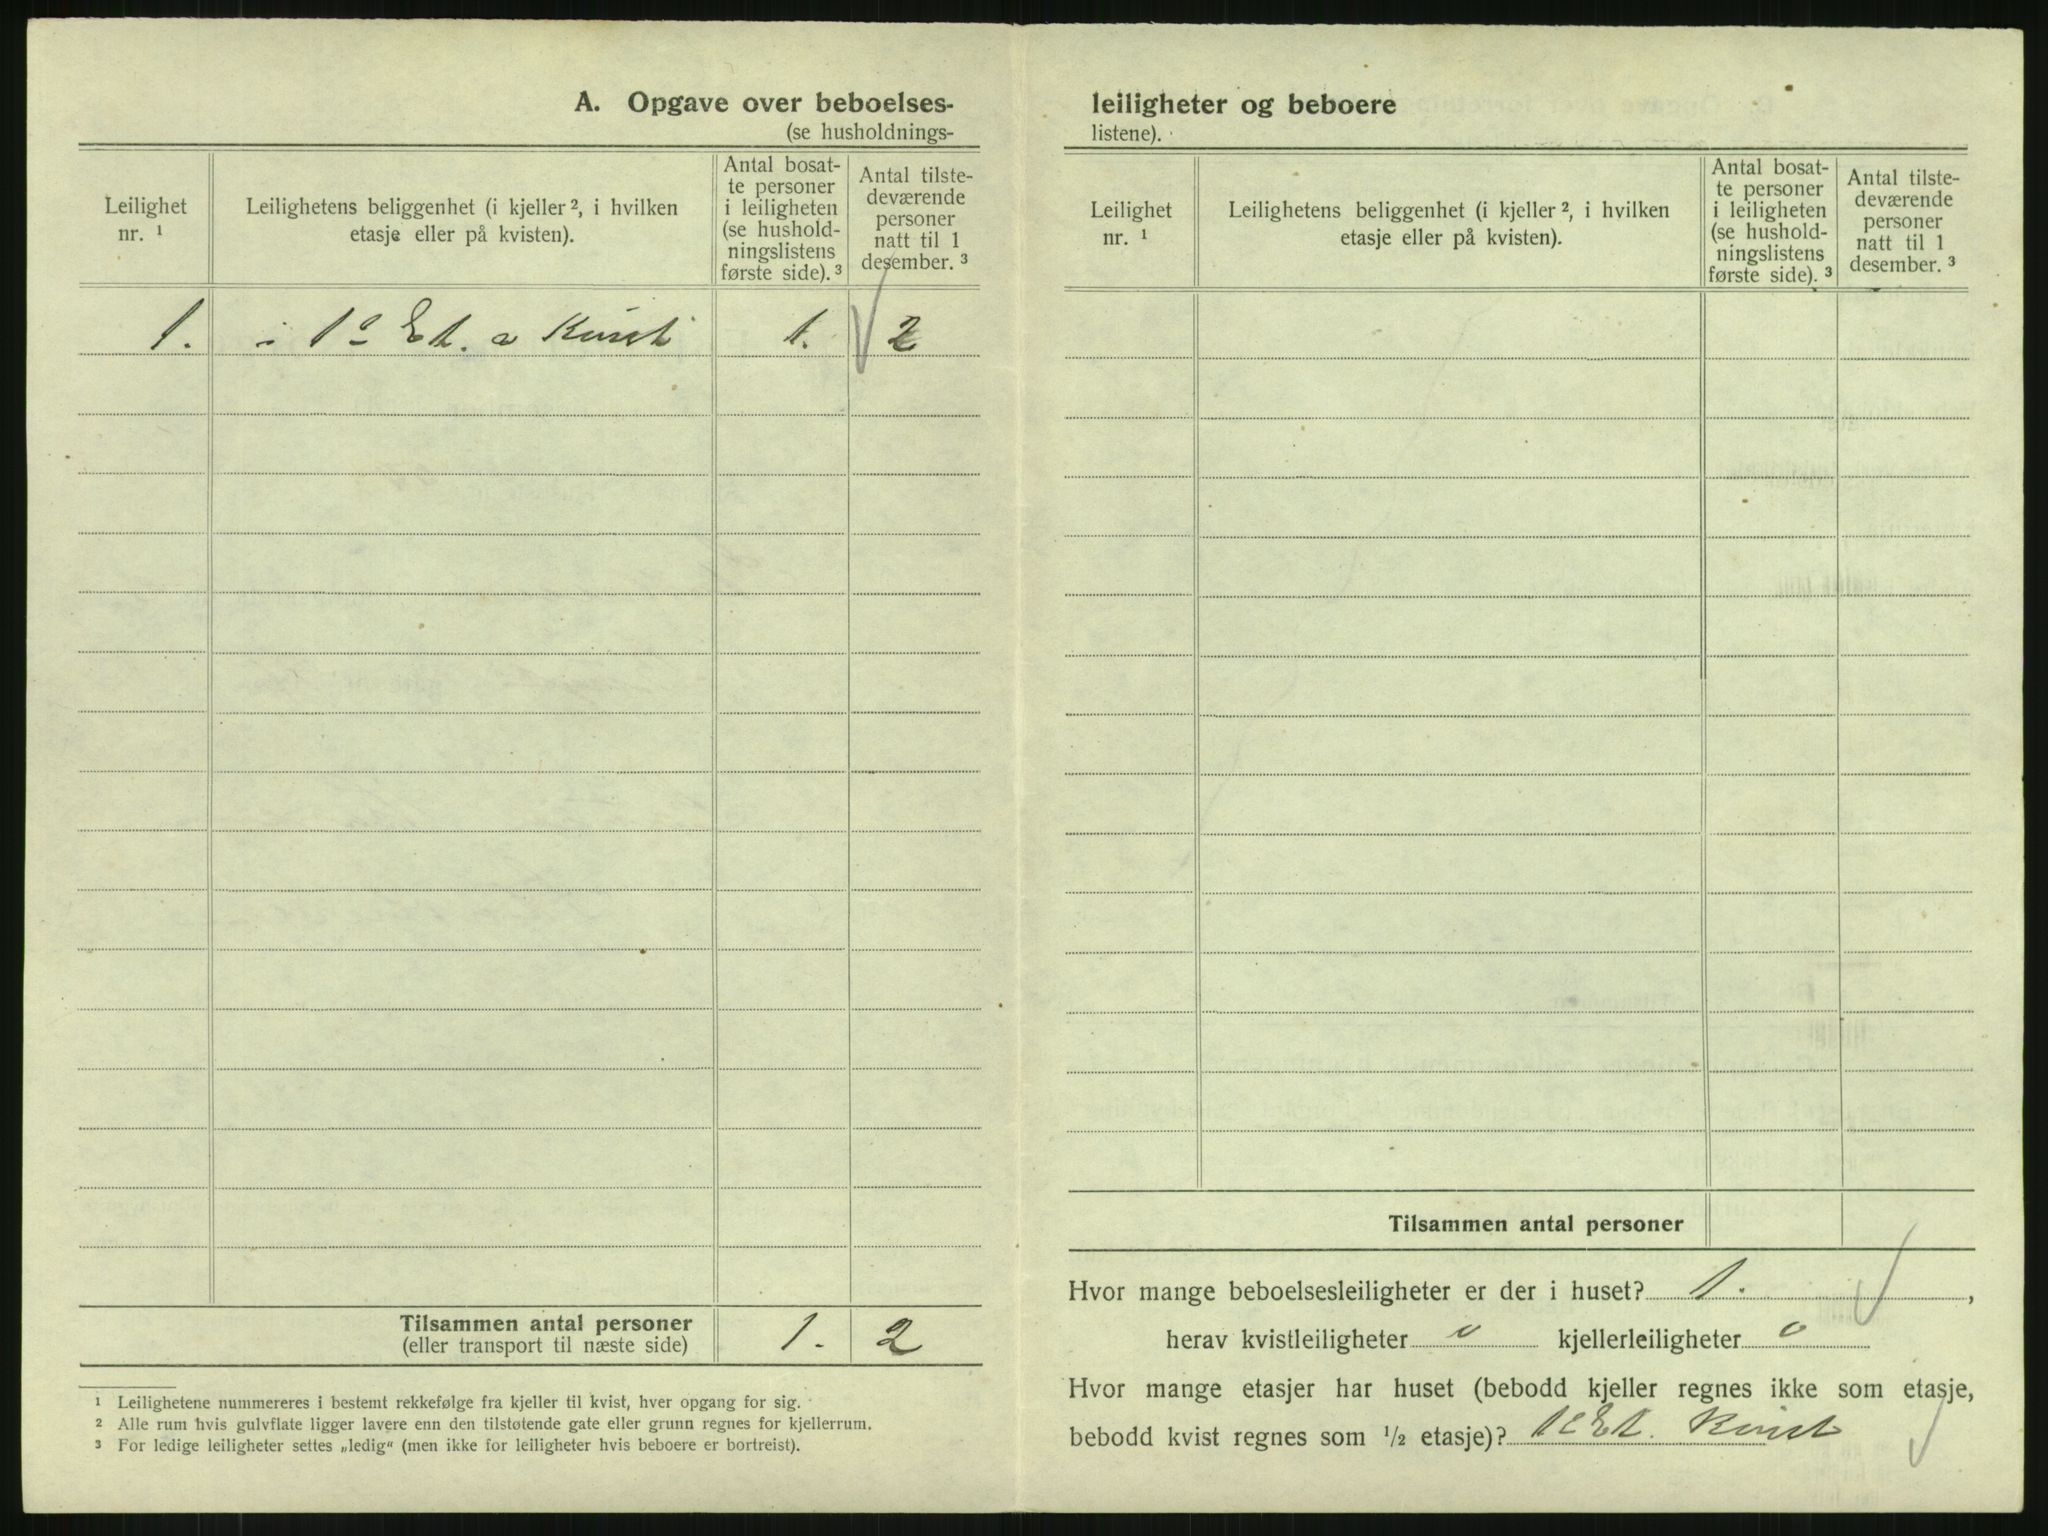 A. Opgave over beboelses-
(se husholdnings-
Leilighet
nr. ¹
Leilighetens beliggenhet (i kjeller ², i hvilken
etasje eller på kvisten).
Antal bosat-
te personer
i leiligheten
(se hushold-
ningslistens
første side). ³
Antal tilste-
deværende
personer
natt til 1
desember. ³
1. i 1ᵉ Et. a Kvist 1. 2
Tilsammen antal personer
(eller transport til næste side)
1. 2
¹ Leilighetene nummereres i bestemt rekkefølge fra kjeller til kvist, hver opgang for sig.
² Alle rum hvis gulvflate ligger lavere enn den tilstøtende gate eller grunn regnes for kjellerrum.
³ For ledige leiligheter settes „ledig“ (men ikke for leiligheter hvis beboere er bortreist).
leiligheter og beboere
listene).
Leilighet
nr. ¹
Leilighetens beliggenhet (i kjeller ², i hvilken
etasje eller på kvisten).
Antal bosat-
te personer
i leiligheten
(se hushold-
ningslistens
første side). ³
Antal tilste-
deværende
personer
natt til 1
desember. ³
Tilsammen antal personer
Hvor mange beboelsesleiligheter er der i huset? 1. ,
herav kvistleiligheter 0 kjellerleiligheter 0
Hvor mange etasjer har huset (bebodd kjeller regnes ikke som etasje,
bebodd kvist regnes som ½ etasje)? 1ᵉ Et. Kvist